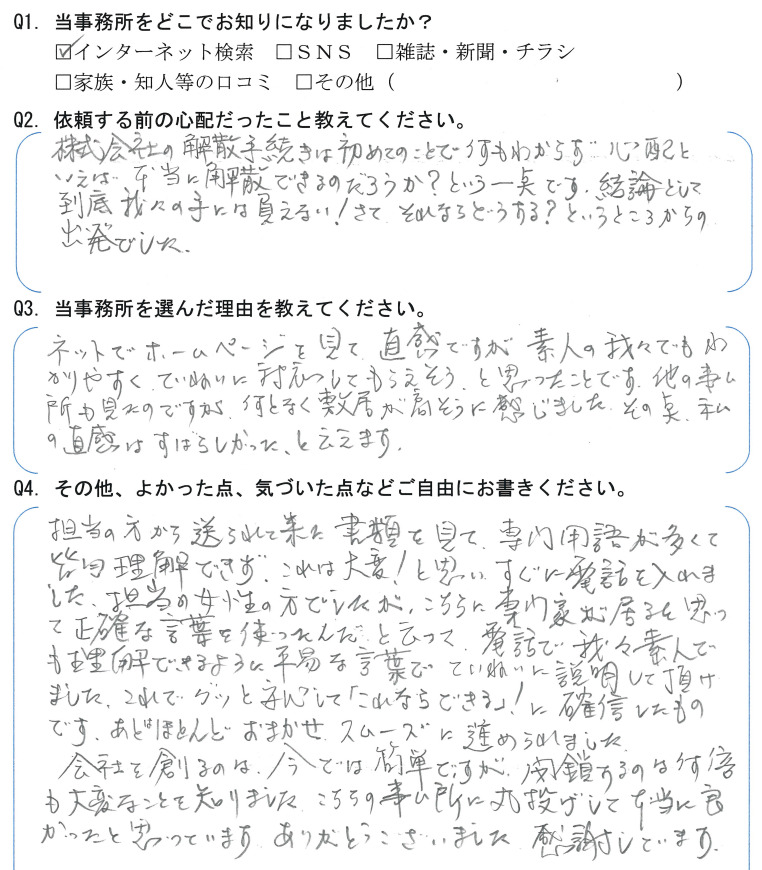 Q1. 当事務所をどこでお知りになりましたか？
☑インターネット検索 □ＳＮＳ □雑誌・新聞・チラシ
□家族・知人等の口コミ □その他（ ）
Q2. 依頼する前の心配だったこと教えてください。
株式会社の解散手続きは初めてのことで何もわからず 心配と
いえば 本当に解散できるのだろうか？という一点です。結論として
到底 我々の手には負えない！さて、それならどうする？というところからの
出発でした。
Q3. 当事務所を選んだ理由を教えてください。
ネットでホームページを見て、直感ですが 素人の我々でもわ
かりやすく、ていねいに対応してもらえそう、と思ったことです。他の事ム
所も見たのですが、何となく敷居が高そうに感じました。その点、私
の直感はすばらしかった、と云えます。
Q4. その他、よかった点、気づいた点などご自由にお書きください。
担当の方から送られて来た書類を見て、専門用語が多くて
皆目理解できず、これは大変！と思い、すぐに電話を入れま
した。担当の女性の方でしたが、こちらに専門家が居ると思っ
て正確な言葉を使ったんだ、と云って、電話で我々素人で
も理解できるように平易な言葉で ていねいに説明して頂け
ました。これでグッと安心して「これならできる」！に確信したもの
です。あとはほとんど おまかせ、スムーズに進められました。
会社を創るのは、今では簡単ですが、閉鎖するのは何倍
も大変なことを知りました。こちらの事ム所に丸投げして本当に良
かったと思っています。ありがとうございました。感謝しています。